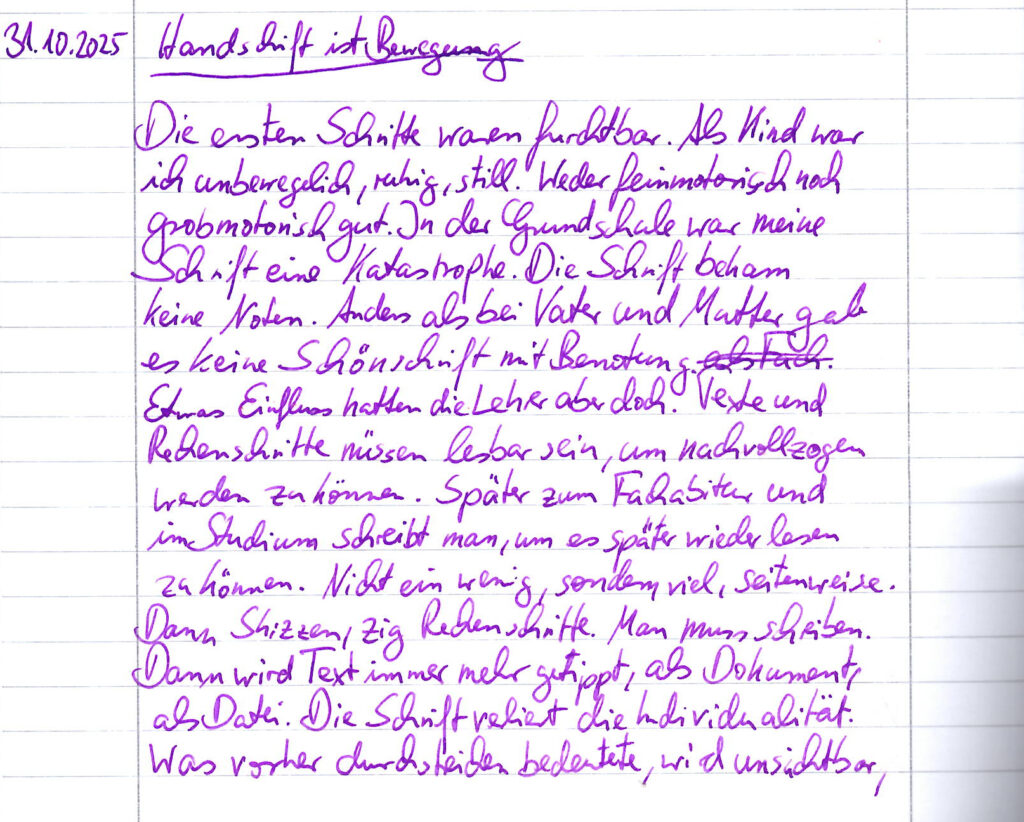 31.10.2025 Handschrift ist Bewegung
Die ersten Schritte waren furchtbar. Als Kind war
ich unbeweglich, ruhig, still. Weder feinmotorisch noch
grobmotorisch gut. In der Grundschule war meine
Schrift eine Katastrophe. Die Schrift bekam
keine Noten. Anders als bei Vater und Mutter gab
es keine Schönschrift mit Benotung. als Fach.
Etwas Einfluss hatten die Lehrer aber doch. Texte und
Rechenschritte müssen lesbar sein, um nachvollzogen
werden zu können. Später zum Fachabitur und
im Studium schreibt man, um es später wieder lesen
zu können. Nicht ein wenig, sondern viel, seitenweise.
Dann Skizzen, zig Rechenschritte. Man muss schreiben.
Dann wird Text immer mehr getippt, als Dokument,
als Datei. Die Schrift verliert die Individualität.
Was vorher durchstreichen bedeutete, wird unsichtbar,